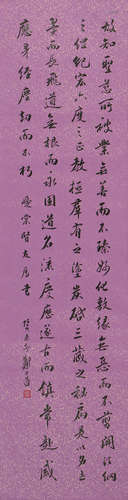 故知聖慈所被業無善而不臻妙化所敷緣無惡而不翦開法網
之綱紀弘六度之正教拯群有之塗炭啟三藏之秘扃是以名無
翼而長飛道無根而永固道名流慶歷遂古而鎮常赴感
應身經塵劫而不朽